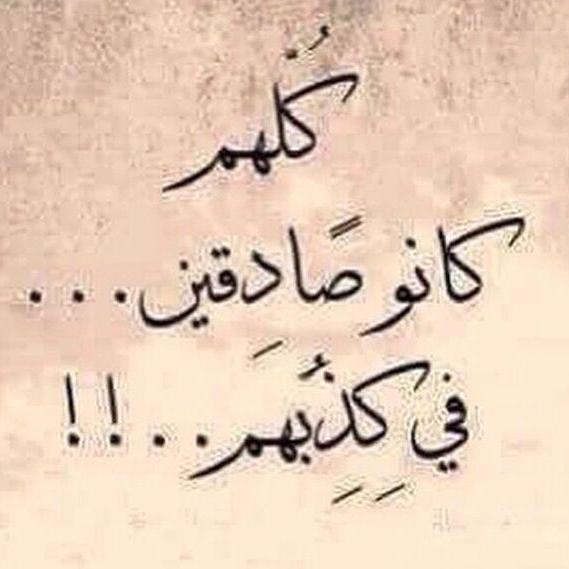 كُلهم
كانو صًادِقين...
في كِذِبُهم..!!